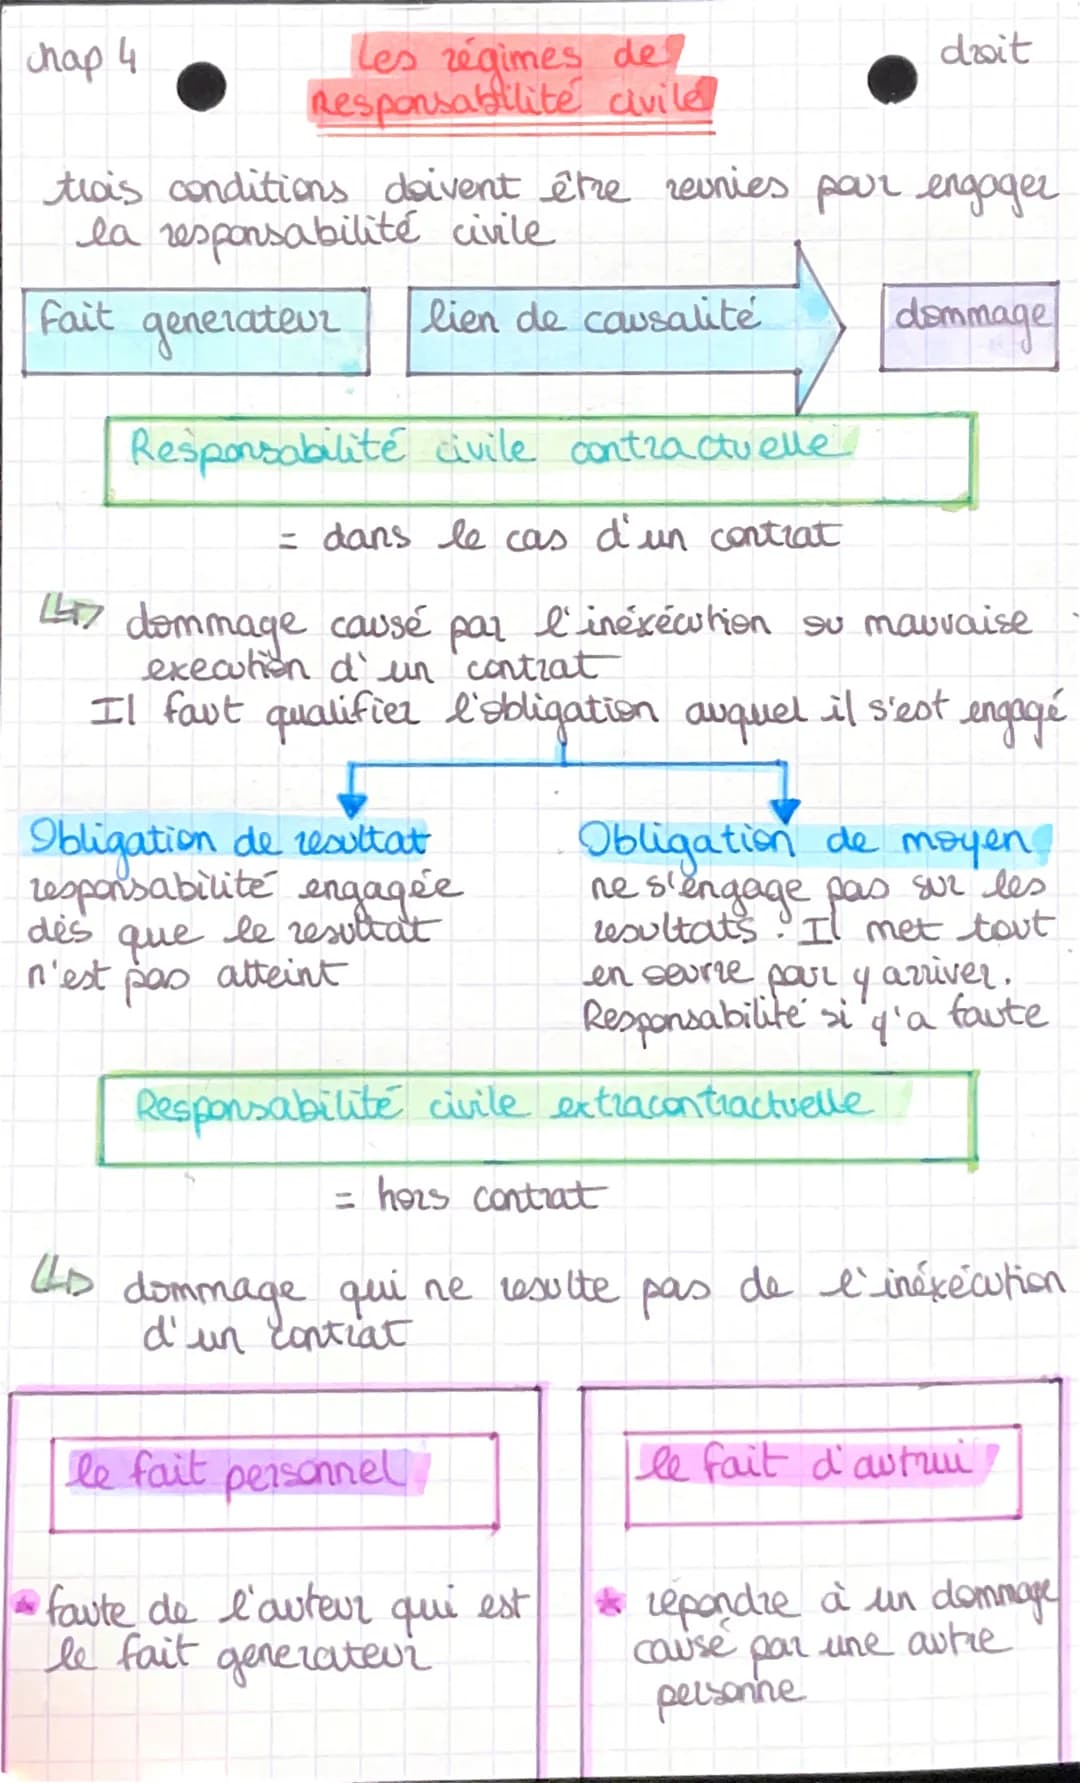 chap 4
Les régimes de
Responsabilité civile
droit
trois conditions doivent être reunies pour engager
la responsabilité civile
fait generateur
lien de causalité
dommage
Responsabilité civile contractuelle
= dans le cas d'un contrat
dommage causé par l'inéxécution ou mauvaise
execution d'un contrat
Il faut qualifier l'obligation auquel il s'est engagé
Obligation de resultat
responsabilité engagée
dès que le resultat
n'est pas atteint
Obligation de moyen
ne s'engage pas sur les
resultats. Il met tout
en oeuvre pour y arriver.
Responsabilité si y'a faute
Responsabilité civile extracontractuelle
= hors contrat
dommage qui ne resulte pas de l'inéxécution
d'un contrat
le fait personnel
* faute de l'auteur qui est
le fait generateur
le fait d'autrui
* répondre à un dommage
causé par une autre
personne